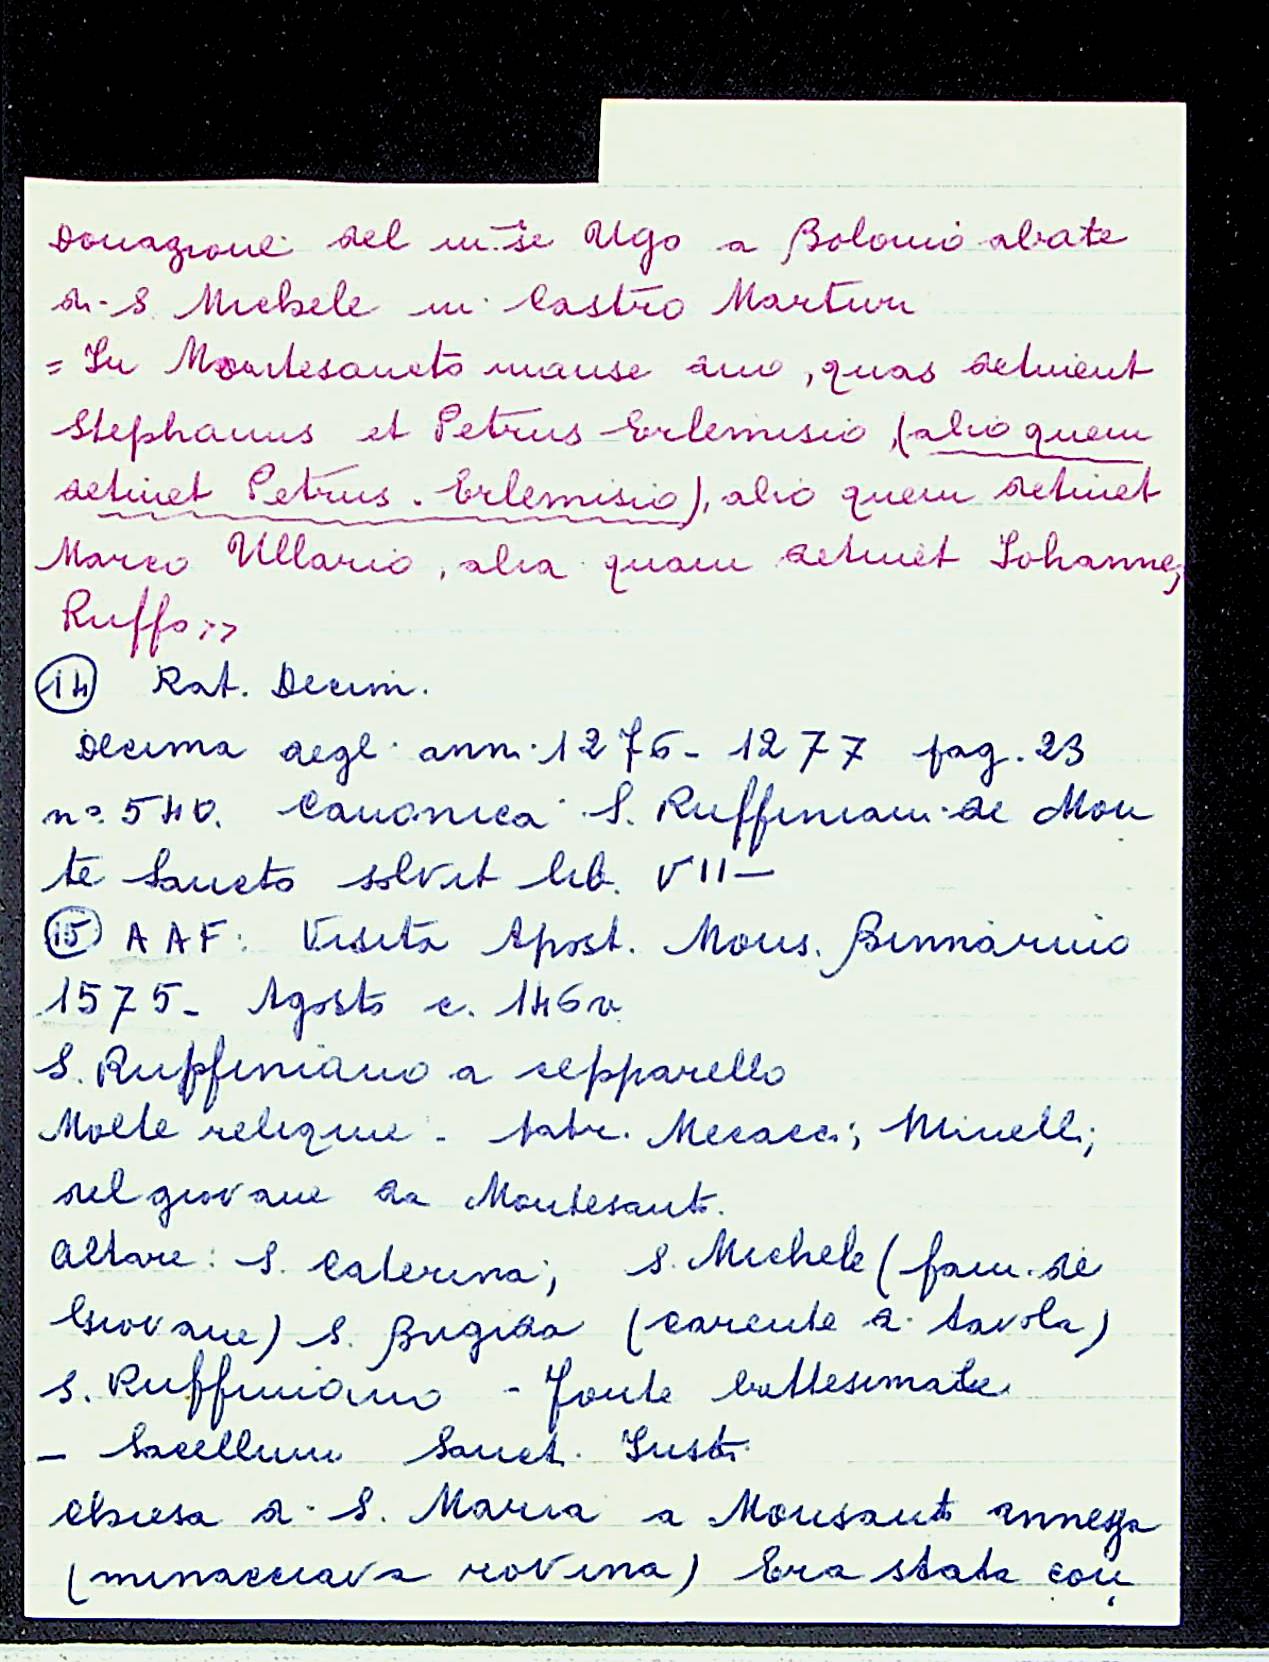 Donazione del m.se Ugo a Bolonio abate
di S. Michele in Castro Marturi
= In Montesancto manse duo, quas detinent
Stephanus et Petrus Erlemisio, (alio quem
detinet Petrus Erlemisio), alio quem detinet
Marco Ullario, alia quam detinet Iohannes
Ruffo>>
(14) Rat. Decim.
Decima degli anni 1276-1277 pag. 23
n° 540. Canonica S. Ruffiniani de Mon
te Sancto solvit lib. VII—
(15) AAF: Visita Apost. Mons. Binnarino
1575- Agosto c. 146v
S. Ruffiniano a cepparello
Molte reliquie - patr. Mecacci; Minelli;
del giovane da Montesanti.
Altare: S. Caterina; S. Michele (fam. del
Giovane) S. Brigida (carente di tavola)
S. Ruffiniano - Fonte battesimale
- Sacellum Sancti Iusti
Chiesa di S. Maria a Monsanti annessa
(minacciava rovina) Era stata con